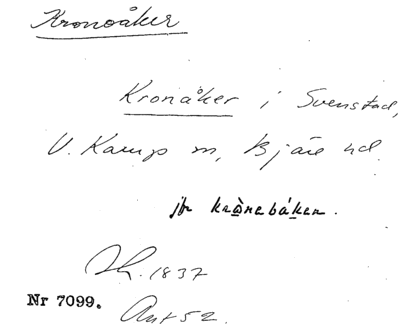 Kronoåker
Kronåker i Svenstad,
V. Karup sn, Bjäre hd.
jfr krònebáken.
Lh. 1837
Nr 7099.
Ant 52.